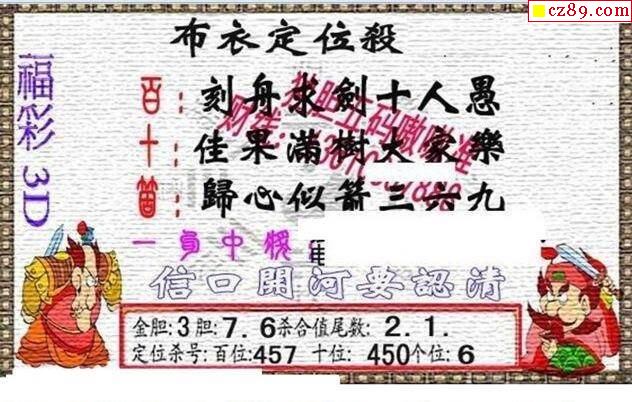 cz89.com
布衣定位殺
福彩 3D
百:刻舟求劍十人愚
十:佳果滿樹大家樂
個:歸心似箭三六九
信口開河要認清
金胆:3胆:7.6杀合值尾数:2.1.
定位杀号:百位:457 十位:450个位:6